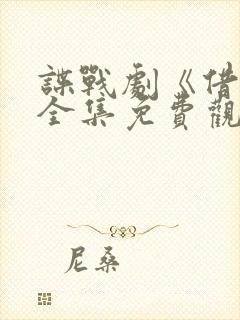 諜戰劇《借
全集免費觀
尼桑